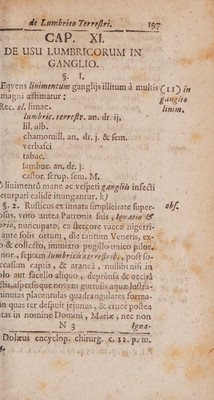 de Lumbrico Terrestri. 197
CAP. XI.
DE USU LUMBRICORUM IN
GANGLIO.
§. I.
Eqvens linimentum ganglijs illitum à multis (11) in
magni æstimatur: ganglio
Rec. ol. limac. linim.
lumbric. terrestr. an. dr. ij.
lil. alb.
chamomill. an. dr. j. & sem.
verbasci
tabac.
sambuc. an. dr. j.
castor. scrup. sem. M.
linimentô mane ac vesperi ganglii infecti
eturpati calidè inungantur. k)
§. 2. Rusticus ex innata simpliciate super- obs.
sus, voto antea Patronis suis, Ignatio &
orio, nuncupato, ex stercore vaccæ nigerri-
ante solis ortum, die tantùm Veneris, ex-
& collecto, immixto pugillo unico pilor,
nor, septem lumbricis terrestrib., post so-
ccasum captis, & aranea, nuilibi nisi in
olo aut sacello aliquo, deprensâ & occisâ
aspersisque novem guttulis aquæ lustra-
minutas placentulas quadrangulares forma-
in quas ter despuit jejunus, & cruce postea
tas in nomine Domini, Mariæ, nec non
N 3 Igna-
Dolæus encyclop. chirurg. c. 11. p. m.